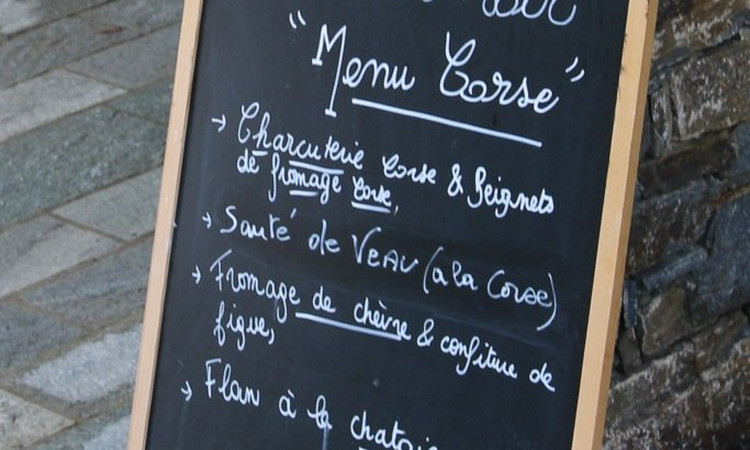 " Menu Corse "
→ Charcuterie Corse & Beignets
de fromage Corse,
→ Sauté de VEAU (a la Corse)
→ Fromage de chèvre & confiture de
figue,
→ Flan à la